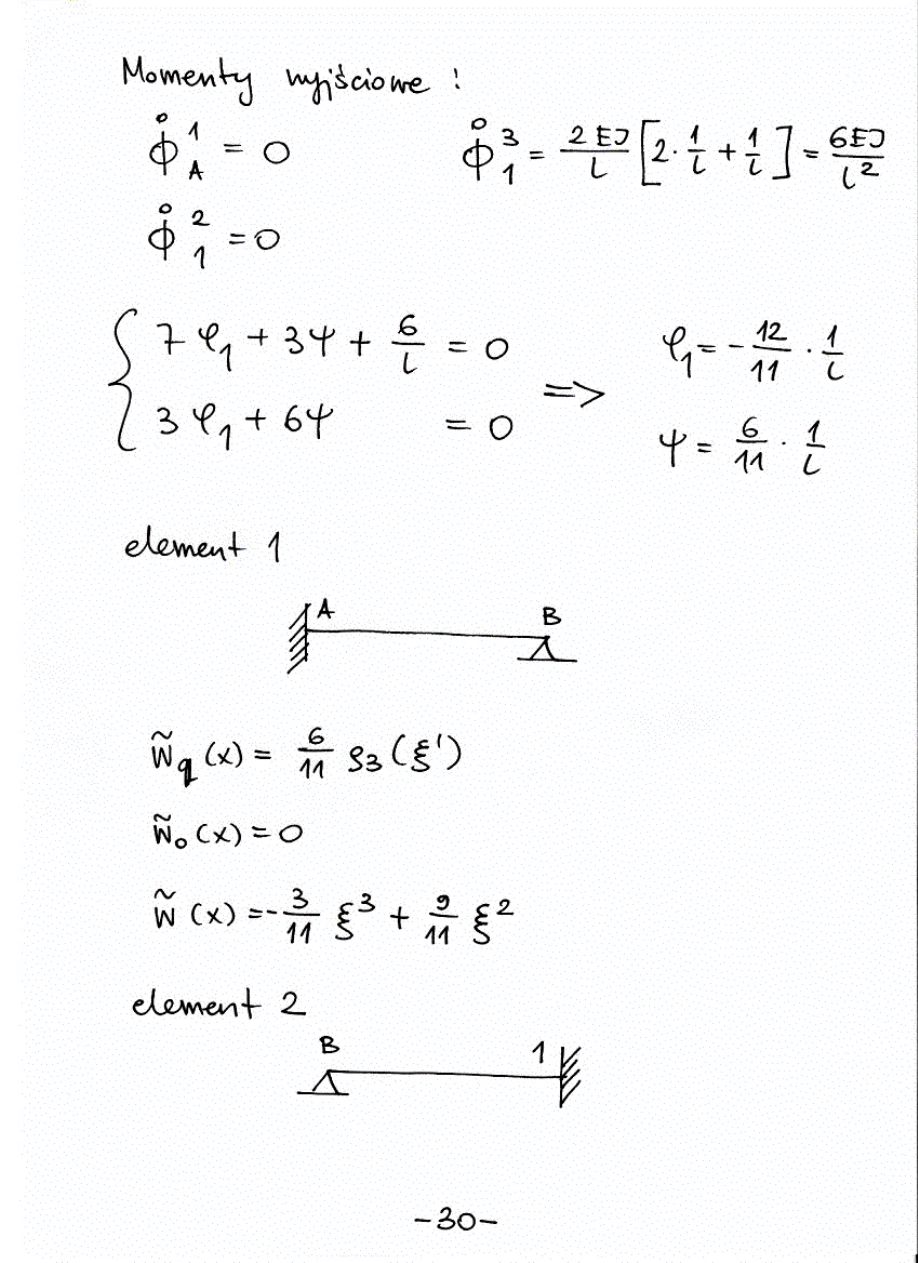 Momenty wyjściowe :
ϕ̊_A^1 = 0
ϕ̊_1^3 = 2EJ/l [2·1/l + 1/l] = 6EJ/l^2
ϕ̊_1^2 = 0
7φ_1 + 3ψ + 6/l = 0
=> φ_1 = -12/11 · 1/l
3φ_1 + 6ψ = 0
ψ = 6/11 · 1/l
element 1
A B
w̃_q (x) = 6/11 ρ_3 (ξ')
w̃_o (x) = 0
w̃ (x) = -3/11 ξ^3 + 9/11 ξ^2
element 2
B 1
-30-